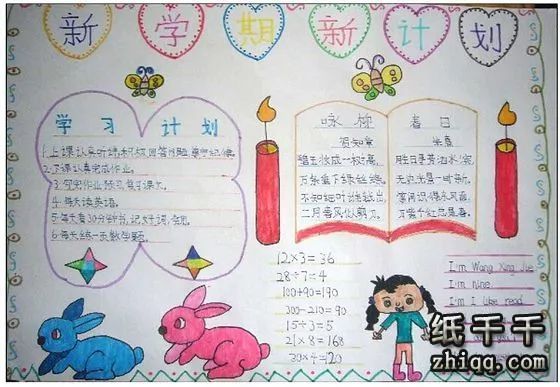 新学期新计划
学习计划
1.上课认真听讲,积极回答问题,遵守纪律。
2.下课认真完成作业。
3.写完作业预习复习课本。
4.每天读英语。
5.每天看30分钟书,记好词,
6.每天练一页数学题。
咏柳
贺知章
碧玉妆成一树高,
万条垂下绿丝绦。
不知细叶谁裁出,
二月春风似剪刀。
春日
朱熹
胜日寻芳泗水滨,
无边光景一时新。
等闲识得东风面,
万紫千红总是春。
12×3=36
28÷7=4
100+90=190
300-210=90
15÷3=5
21×8=168
I'm Wang Xing
I'm nine.
I'm I like read
纸千千
zhiqq.com